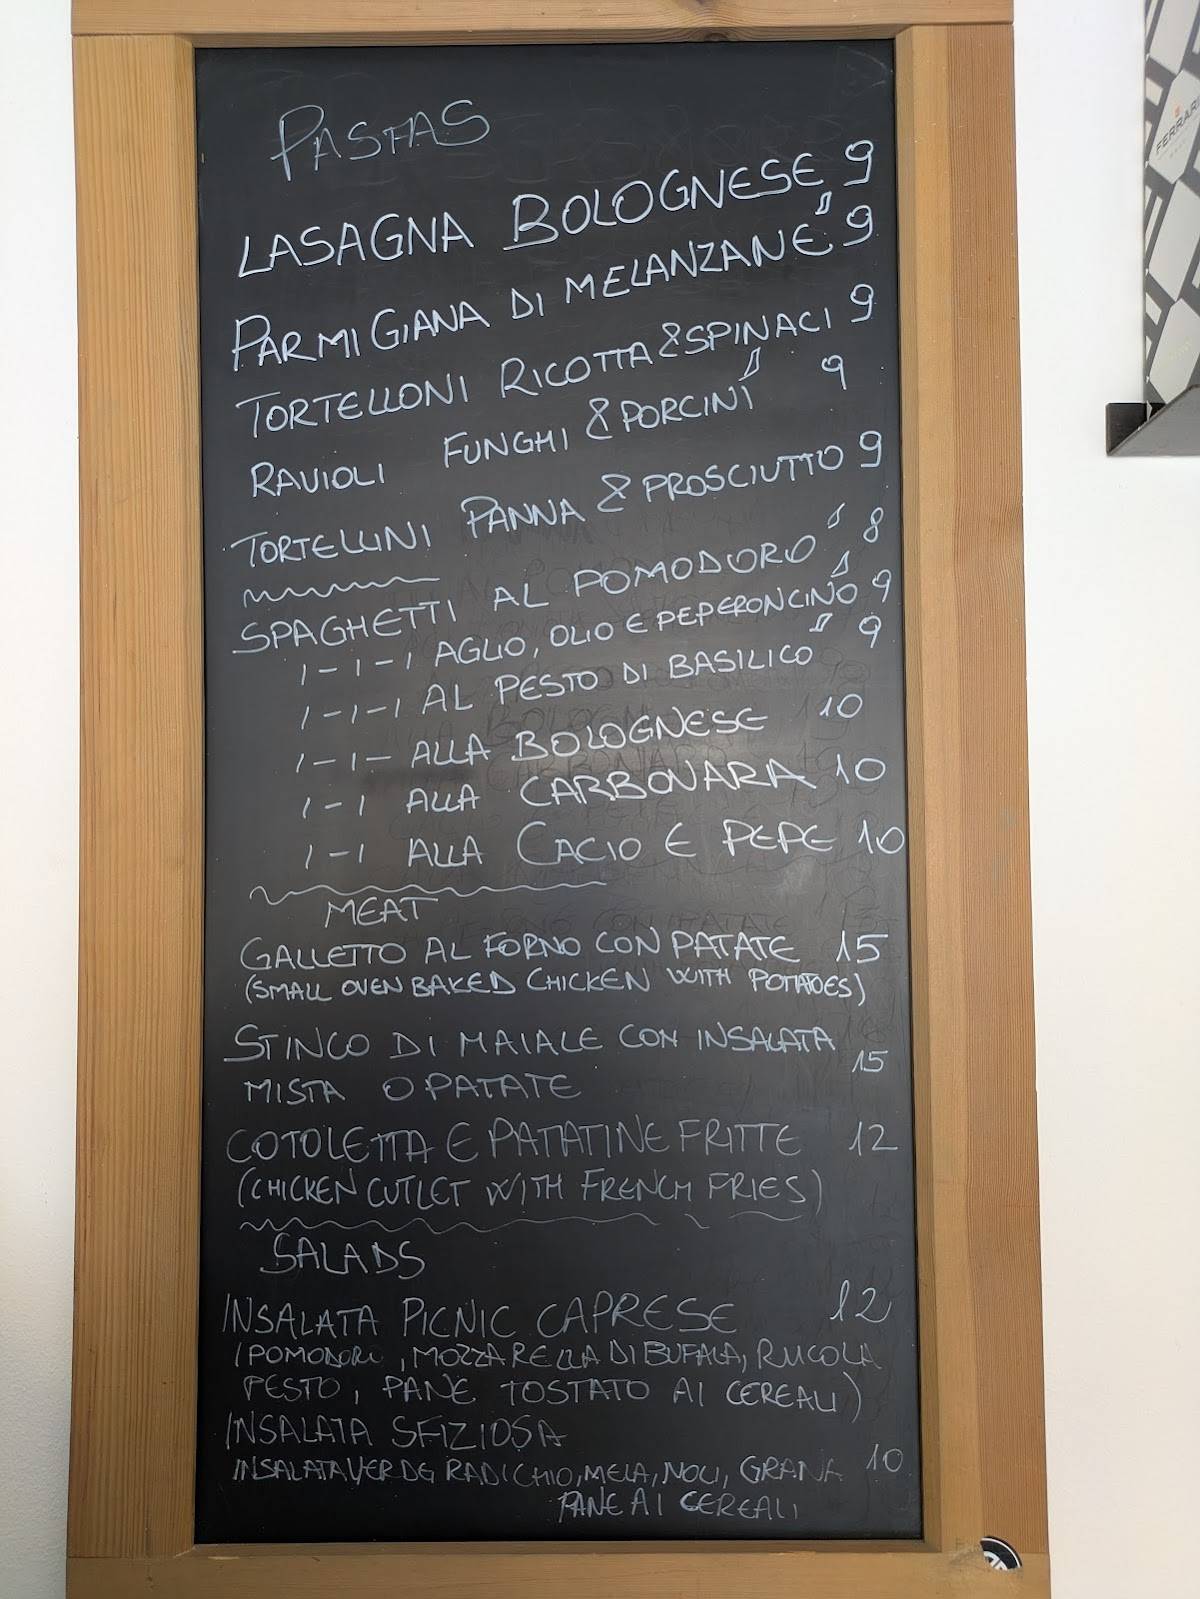 PASTAS
LASAGNA BOLOGNESE 9
PARMIGIANA DI MELANZANE 9
TORTELLONI RICOTTA & SPINACI 9
RAVIOLI FUNGHI & PORCINI 9
TORTELLINI PANNA & PROSCIUTTO 9
SPAGHETTI AL POMODORO 8
1-1-1 AGLIO, OLIO E PEPERONCINO 9
1-1-1 AL PESTO DI BASILICO 9
1-1- ALLA BOLOGNESE 10
1-1 ALLA CARBONARA 10
1-1 ALLA CACIO E PEPE 10
MEAT
GALLETTO AL FORNO CON PATATE 15
(SMALL OVEN BAKED CHICKEN WITH POTATOES)
STINCO DI MAIALE CON INSALATA
MISTA O PATATE 15
COTOLETTA E PATATINE FRITTE 12
(CHICKEN CUTLET WITH FRENCH FRIES)
SALADS
INSALATA PICNIC CAPRESE 12
(POMODORO, MOZZARELLA DI BUFALA, RUCOLA
PESTO, PANE TOSTATO AI CEREALI)
INSALATA SFIZIOSA
INSALATA VERDE RADICHIO, MELA, NOCI, GRANA 10
PANE AI CEREALI
FERRARI